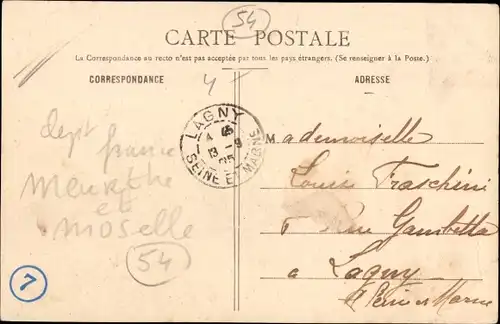 54
CARTE POSTALE
La Correspondance au recto n'est pas acceptée par tous les pays étrangers. (Se renseigner à la Poste.)
CORRESPONDANCE
ADRESSE
4 +
LAGNY
13 - 9
SEINE ET MARNE
dept france
Meurthe
et
moselle
54
7
Mademoiselle
Louise Fraschini
6 Rue Gambetta
à Lagny
Seine et Marne